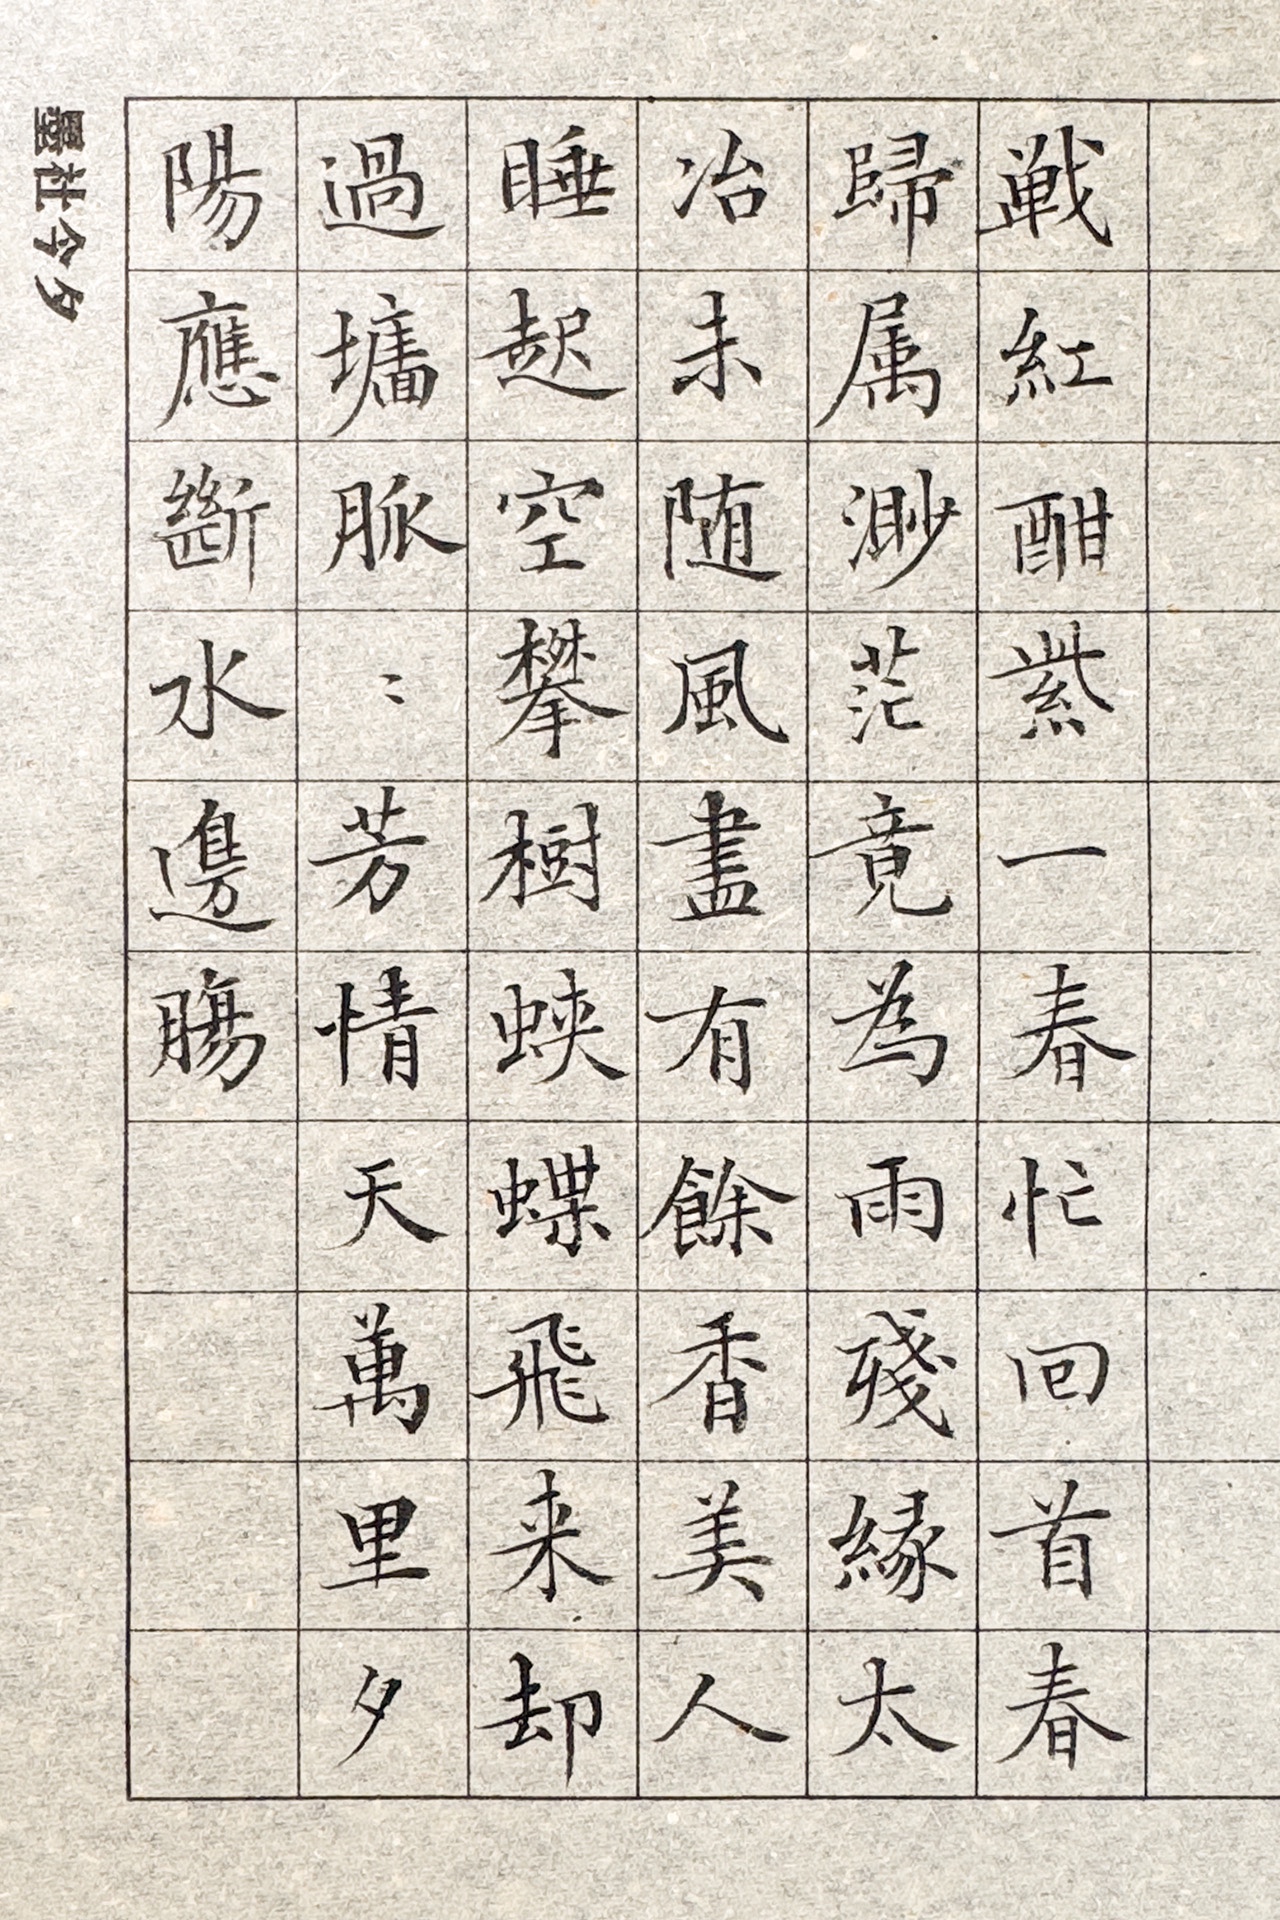 戦紅酣紫一春忙回首春
歸属渺茫竟為雨殘緣太
冶未随風盡有餘香美人
睡起空攀樹蛺蝶飛来却
過墻脈〻芳情天萬里夕
陽應斷水邊腸
墨社今夕